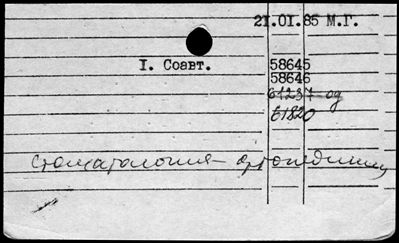 21.01.85 М.Г.
I. Соавт. 58645
58646
61237-од
61820
стоматология-ортопедиии